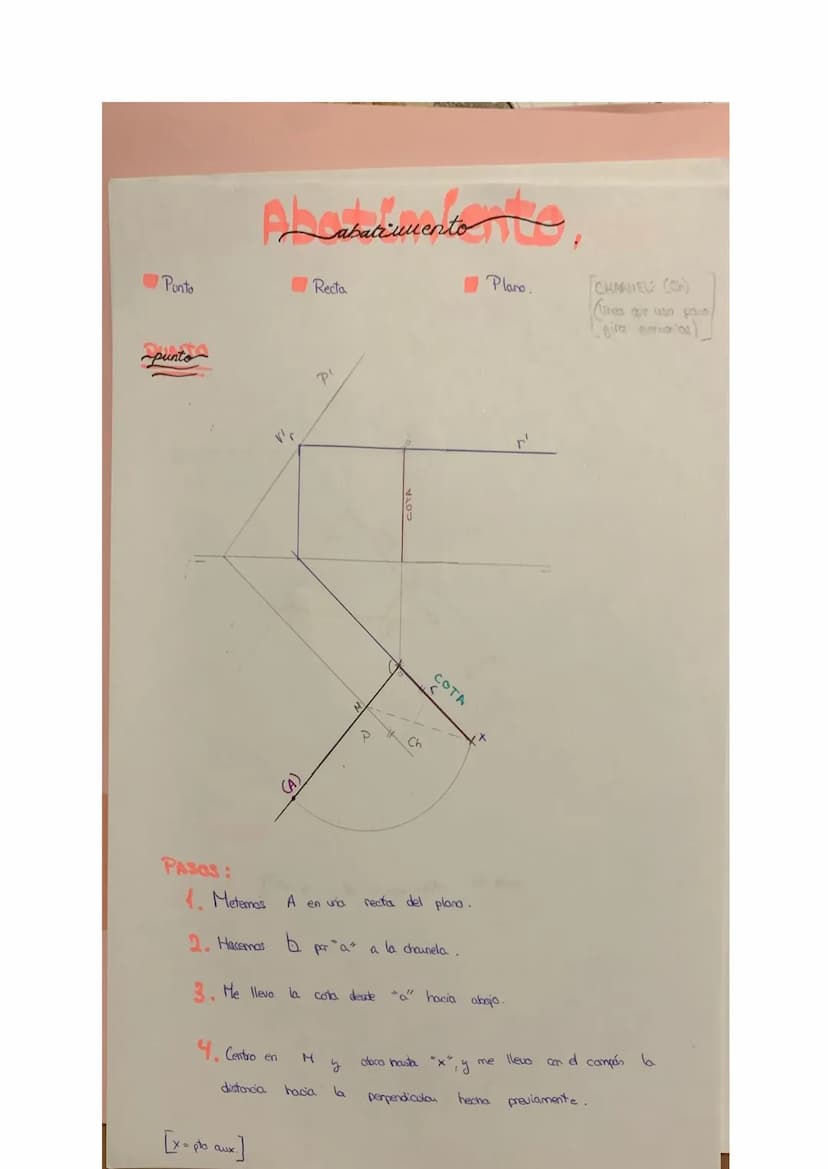 Abatimiento.
abatimiento
Punto
Recta
Plano.
[CHARNELA (Ch)
(línea que uso para
girar
PUNTO
punto
P'
V'r
r'
COTA
COTA
r
M
P
Ch
x
(A)
PASOS:
1. Metemos A en una recta del plano.
2. Hacemos por "a" a la charnela.
3. Me llevo la cota desde "a" hacia abajo.
4. Centro en M y abro hasta "x", y me llevo con el compás la
distancia hacia la perpendicular hecha previamente.
[x = pto aux.]